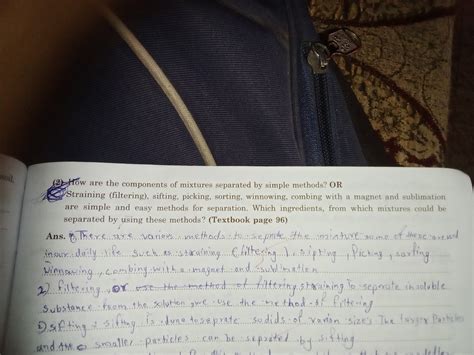 (2) How are the components of mixtures separated by simple methods? OR
Straining (filtering), sifting, picking, sorting, winnowing, combing with a magnet and sublimation
are simple and easy methods for separation. Which ingredients, from which mixtures could be
separated by using these methods? (Textbook page 96)
Ans. There are various methods to seprate the mixture some of these are used
in our daily life such as straining (filtering), sifting, Picking, sorting
winnowing, combing with a magnet and sublimation
2) filtering, or use the method of filtering straining to seprate insoluble
substance from the solution we use the method of filtering
sifting: sifting is done to seprate sodids of varion sizes The larger Particles
and the smaller particles can be separated by sifting